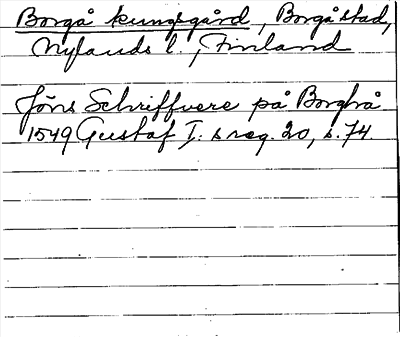 Borgå kungsgård, Borgå stad,
Nylands l., Finland
Jöns Schriffvere på Borghå
1549 Gustaf I: s reg. 20, s. 74.